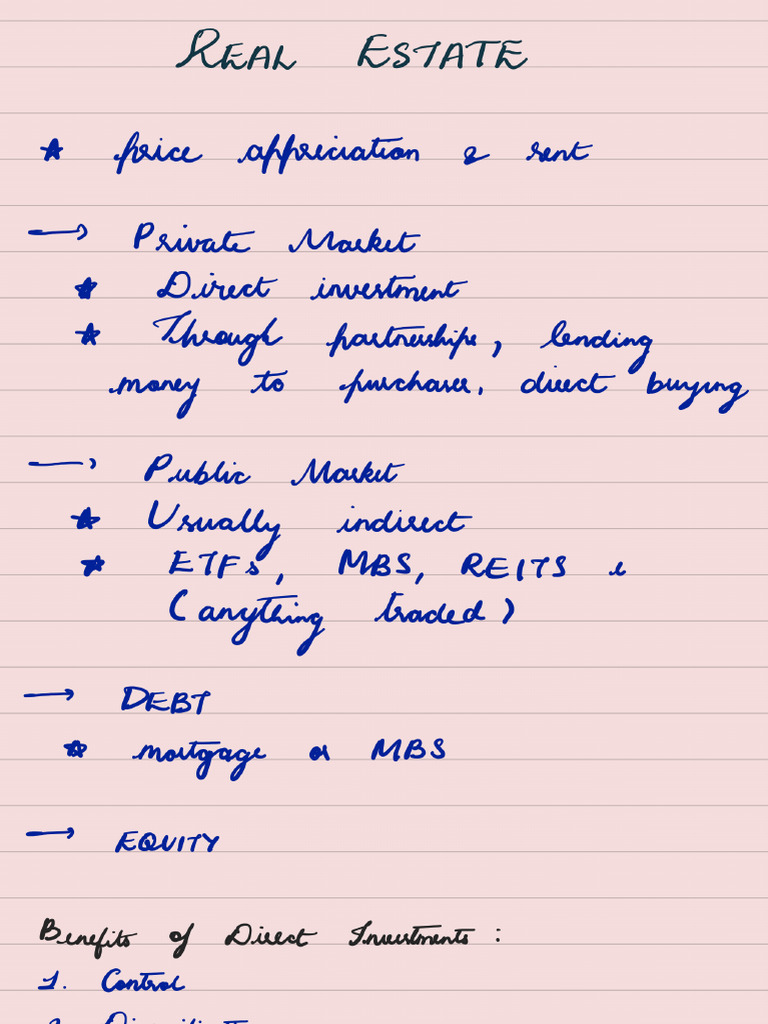 REAL ESTATE
* price appreciation & rent
→ Private Market
* Direct investment
* Through partnerships, lending
money to purchaser, direct buying
→ Public Market
* Usually indirect
* ETFs, MBS, REITS
(anything traded)
→ DEBT
* mortgage or MBS
→ EQUITY
Benefits of Direct Investments :
1. Control